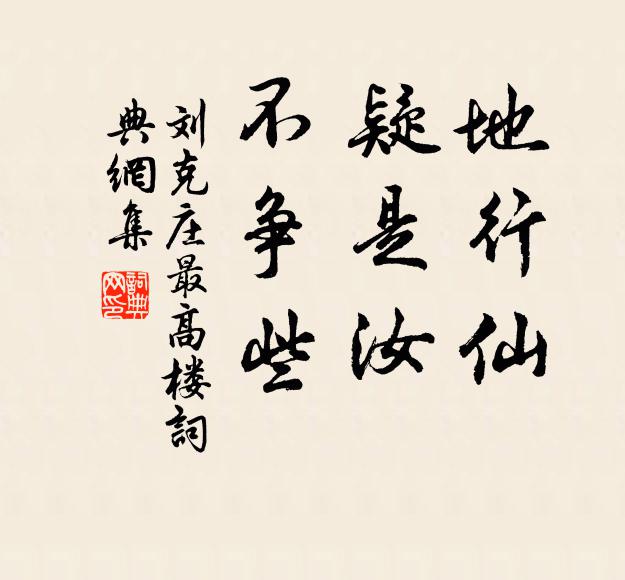 地行仙
疑是汝
不争些
刘克庄最高楼詞
典網集
詞典网印